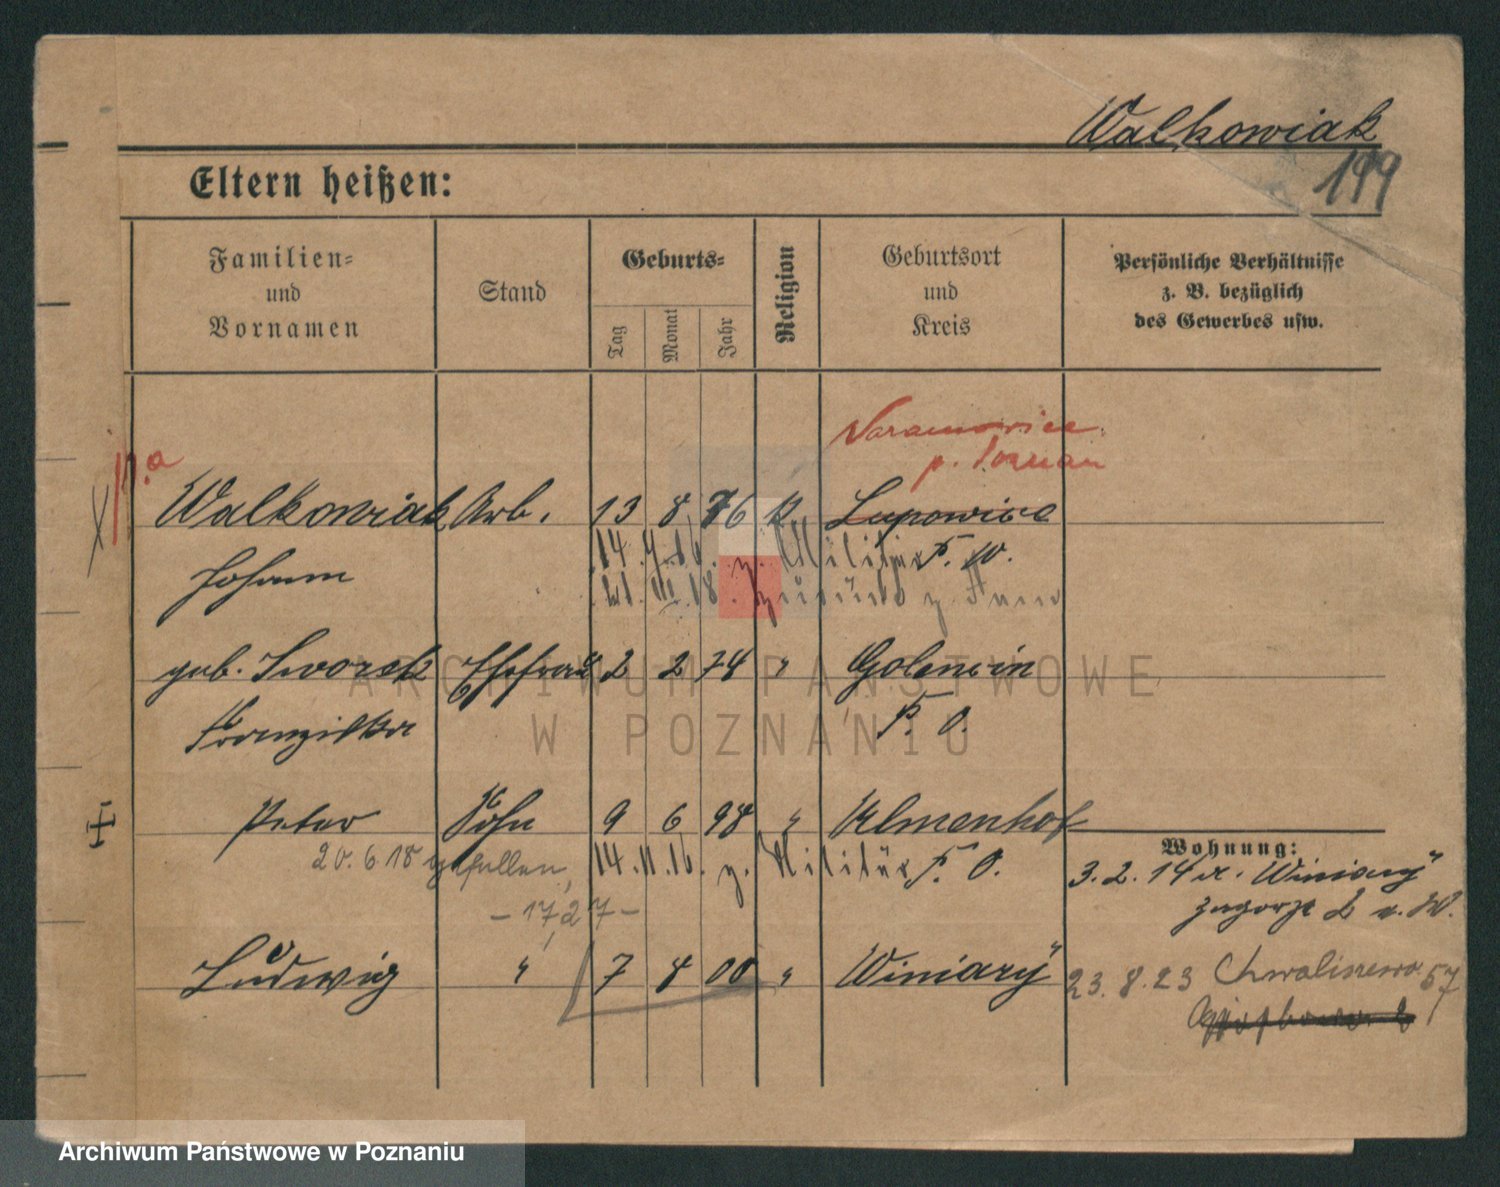 Walkowiak
199
Eltern heißen:
Familien- und Vornamen
Stand
Geburts-
Tag
Monat
Jahr
Religion
Geburtsort und Kreis
Persönliche Verhältnisse z. B. bezüglich des Gewerbes usw.
Naramowice
p. Poznań
Walkowiak Arb. 13 8 76 k. Lupowice
Johann 14. 16. z. Militär P. W.
18. zurück z.
geb. Sworek Ehefrau 2 2 74 " Golencin
Franziska P. O.
Peter Sohn 9 6 98 " Ulmenhof
Wohnung:
20.6.18 gefallen, 14.11.16. z. Militär P. O. 3. 2. 14 a. Winiary
- 1727 -
Ludwig " 7 8 00 " Winiary 23.8.23 Chwaliszewo 57
ARCHIWUM PAŃSTWOWE
W POZNANIU
Archiwum Państwowe w Poznaniu